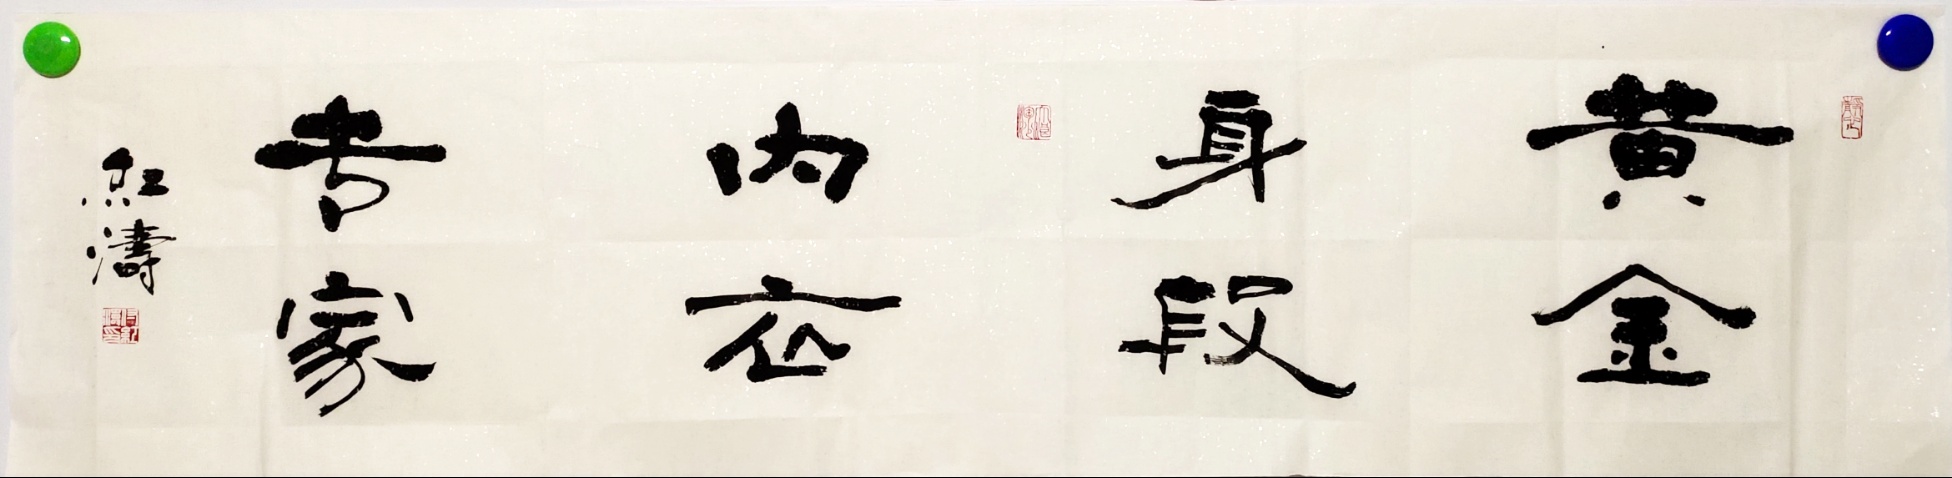 黄金
身段
内衣
专家
红涛